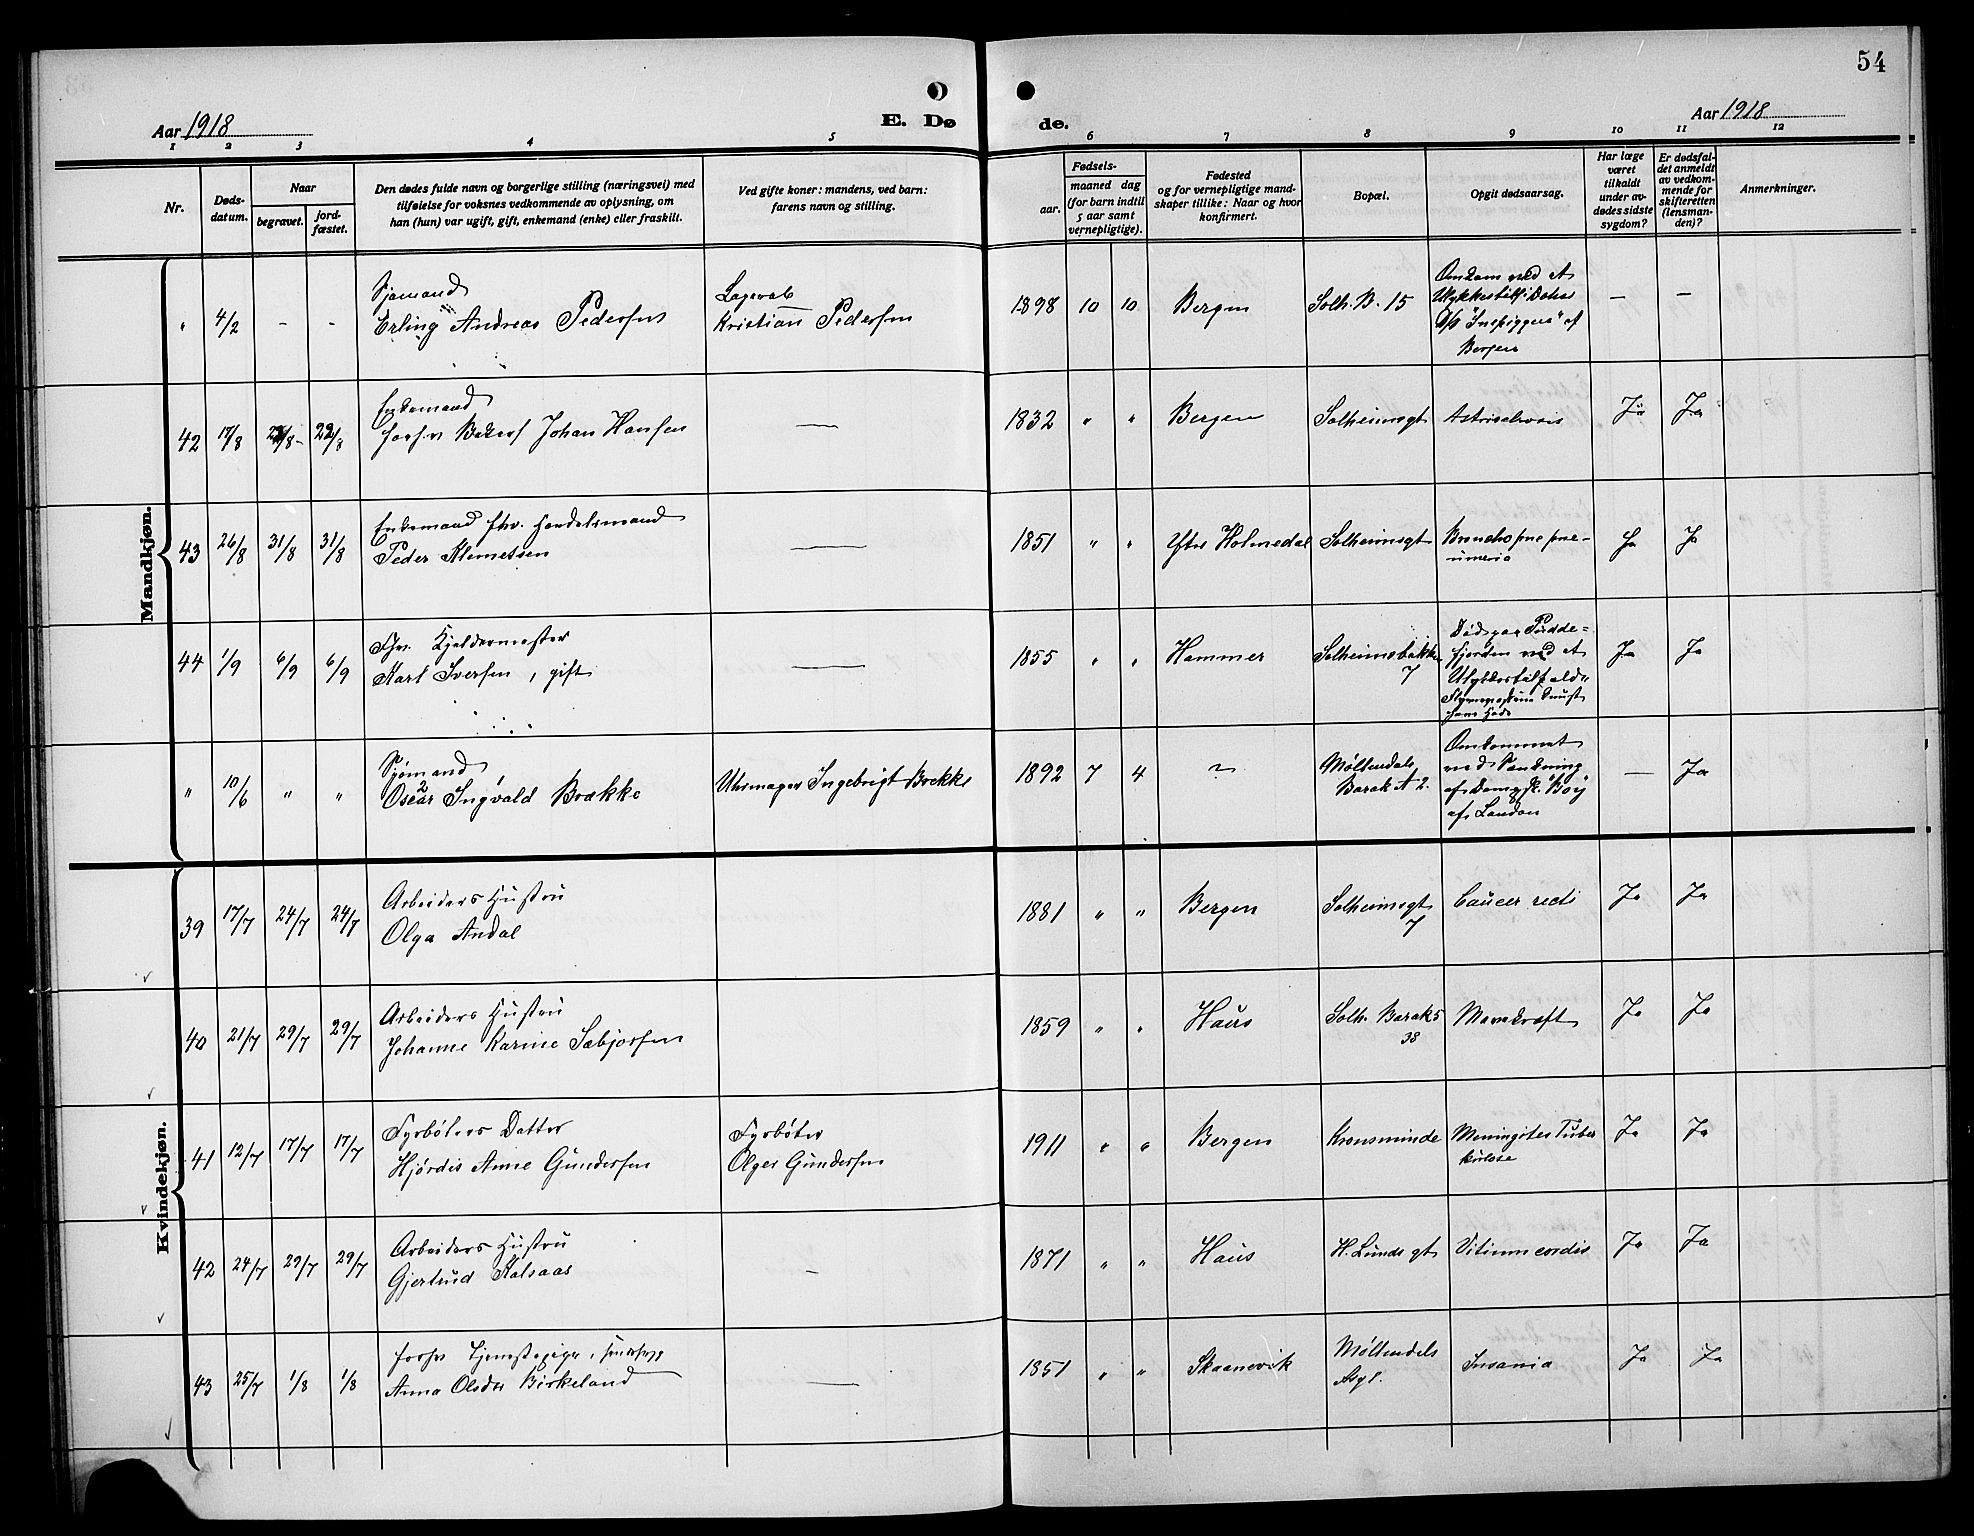 54
Aar 1918
E. Døde.
Aar 1918
1 2 3 4 5 6 7 8 9 10 11 12
Nr.
Døds-
datum.
Naar
begravet.
jord-
fæstet.
Den dødes fulde navn og borgerlige stilling (næringsvei) med
tilføielse for voksnes vedkommende av oplysning, om
han (hun) var ugift, gift, enkemand (enke) eller fraskilt.
Ved gifte koner: mandens, ved barn:
farens navn og stilling.
Fødsels-
aar.
maaned dag
(for barn indtil
5 aar samt
vernepligtige).
Fødested
og for vernepligtige mand-
skaper tillike: Naar og hvor
konfirmert.
Bopæl.
Opgit dødsaarsag.
Har læge
været
tilkaldt
under av-
dødes sidste
sygdom?
Er dødsfal-
det anmeldt
av vedkom-
mende for
skifteretten
(lensman-
den)?
Anmerkninger.
Mandkjøn.
" 4/2 - -
Sjømand
Erling Andreas Pedersen
Kristian Pedersen
1898 10 10 Bergen Solh. B. 15
Omkom ved et
Ulykkestilf.
Bergen
— —
42 17/8 22/8
Enkemand
Johan Hansen
—
1832 " " Bergen Solheimsgt Ja Ja
43 26/8 31/8 31/8
Enkemand fhv. Handelsmand
Peder Klemetsen
—
1851 " " Ytre Holmedal Solheimsgt Ja Ja
44 1/9 6/9 6/9
Fhv. Kjeldermester
Karl Iversen, gift
—
1855 " " Hammer Solheimsbakke
7
fjorden ved et
Ja Ja
" 10/6 " "
Sjømand
Oscar Ingvald Brække
Uhrmager Ingebrigt Brekke
1892 7 4 ? Møllendals
Barak A 2.
Omkommet
ved Sænkning
af London
— Ja
Kvindekjøn.
39 17/7 24/7 24/7
Arbeiders Hustru
Olga Andal
1881 " " Bergen Solheimsgt
7
Cancer recti Ja Ja
40 21/7 29/7 29/7
Arbeiders Hustru
Johanne Karine Sæbjørsen
1859 " " Haus Solh. Barak 5
38
Mavekræft Ja Ja
41 12/7 17/7 17/7
Fyrbøters Datter
Hjørdis Anne Gundersen
Fyrbøter
Olger Gundersen
1911 " " Bergen Kronsminde Ja Ja
42 24/7 29/7 29/7
Arbeiders Hustru
Gjertrud Kalsaas
—
1871 " " Haus H. Lunds gt Vitium cordis Ja Ja
43 25/7 1/8 1/8
Anna Olsdtr Birkeland
—
1851 " " Skaanevik Møllendals
Asyl.
Insania Ja Ja